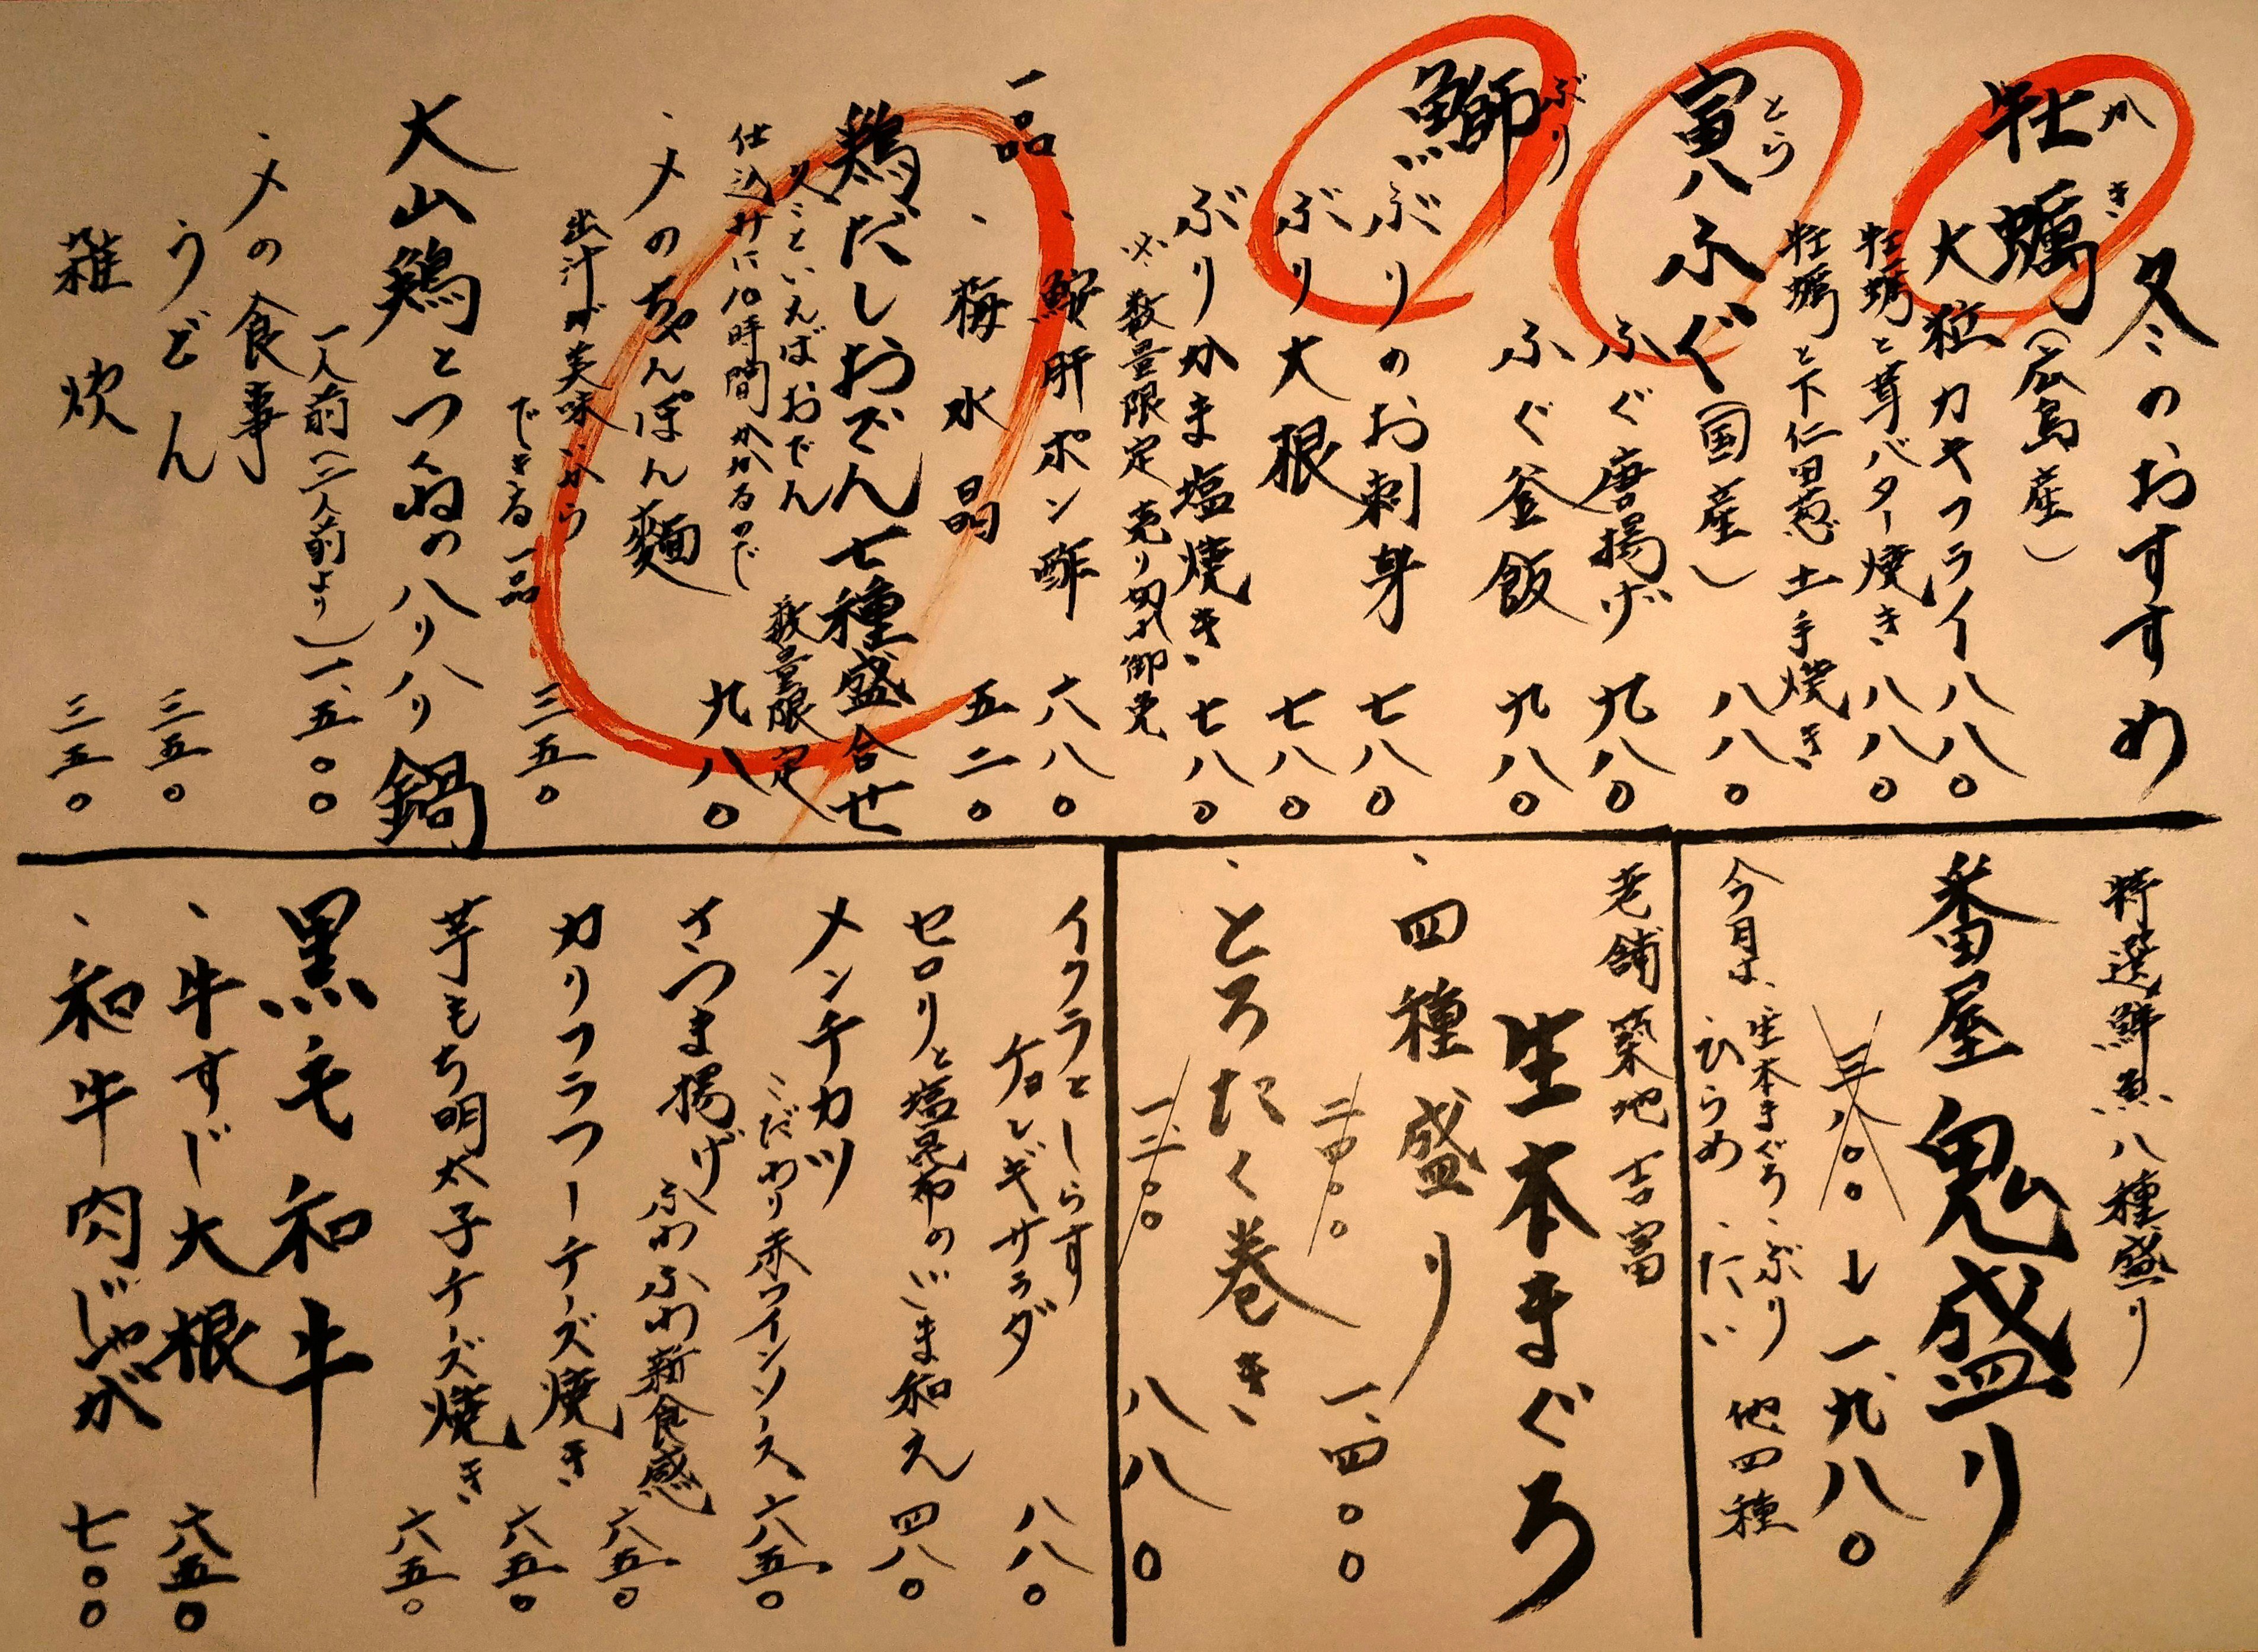 冬のおすすめ
牡蠣(広島産)
かき
大粒カキフライ 八八〇
牡蠣と茸バター焼き 八八〇
牡蠣と下仁田葱土手焼き 八八〇
とら
寅八ふぐ(国産)
ふぐ唐揚げ 九八〇
ふぐ釜飯 九八〇
ぶり
鰤
ぶりのお刺身 七八〇
ぶり大根 七八〇
ぶりかま塩焼き 七八〇
※数量限定 売り切れ御免
一品
、鮟肝ポン酢 六八〇
、梅水晶 五二〇
鶏だしおでん七種盛合せ
冬といえばおでん 数量限定
仕込みに10時間かかるので
九八〇
、〆のちゃんぽん麺
出汁が美味いから
できる一品 三五〇
大山鶏とつくねのハリハリ鍋
一人前(二人前より) 一、五〇〇
、〆の食事
うどん 三五〇
雑炊 三五〇
特選鮮魚八種盛り
番屋鬼盛り
三、八〇〇 一、九八〇
今月は、生本まぐろ、ぶり
、ひらめ、たい 他四種
老舗築地吉富
生本まぐろ
、四種盛り
二、四〇〇 一、四〇〇
、とろたく巻き
一、二〇〇 八八〇
イクラとしらす
チョレギサラダ 八八〇
セロリと塩昆布のごま和え 四八〇
メンチカツ
こだわり赤ワインソース 六五〇
さつま揚げ ふわふわ新食感 六五〇
カリフラワーチーズ焼き 六五〇
芋もち明太子チーズ焼き 六五〇
黒毛和牛
、牛すじ大根 六五〇
、和牛肉じゃが 七〇〇